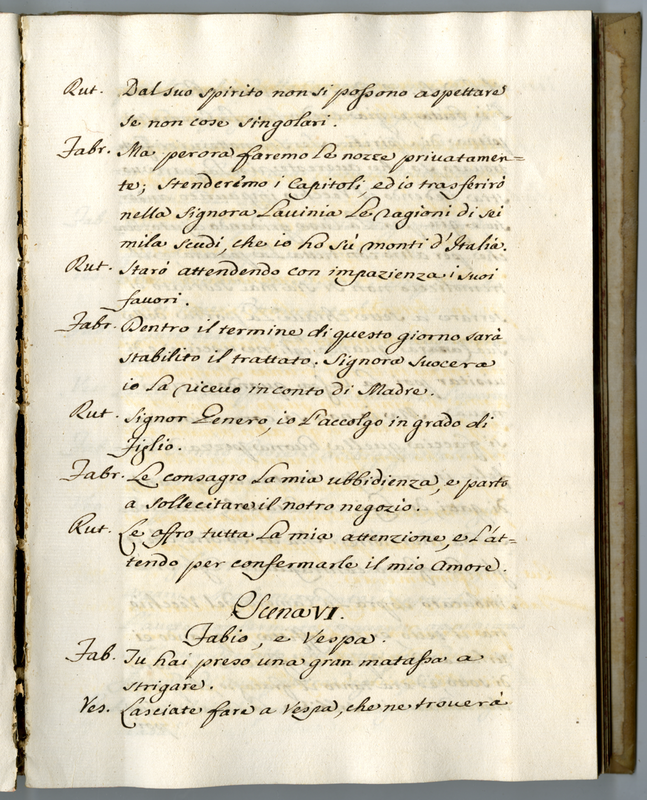 Rut. Dal suo spirito non si possono aspettare
se non cose singolari.
Fabr. Ma perora faremo le nozze privatamen=
te; stenderémo i Capitoli, ed io trasferirò
nella Signora Lavinia le ragioni di sei
mila scudi, che io ho sù monti d'Italia.
Rut. Starò attendendo con impazienza i suoi
favori.
Fabr. Dentro il termine di questo giorno sarà
stabilito il trattato. Signora suocera
io la ricevo in conto di Madre.
Rut. Signor Genero, io l'accolgo in grado di
Figlio.
Fabr. Le consagro la mia ubbidienza, e parto
a sollecitare il notro negozio.
Rut. Le offro tutta la mia attenzione, e l'at=
tendo per confermarle il mio amore.
Scena VI.
Fabio, e Vespa.
Fab. Tu hai preso una gran matassa a
strigare.
Ves. Lasciate fare a Vespa, che ne troverà